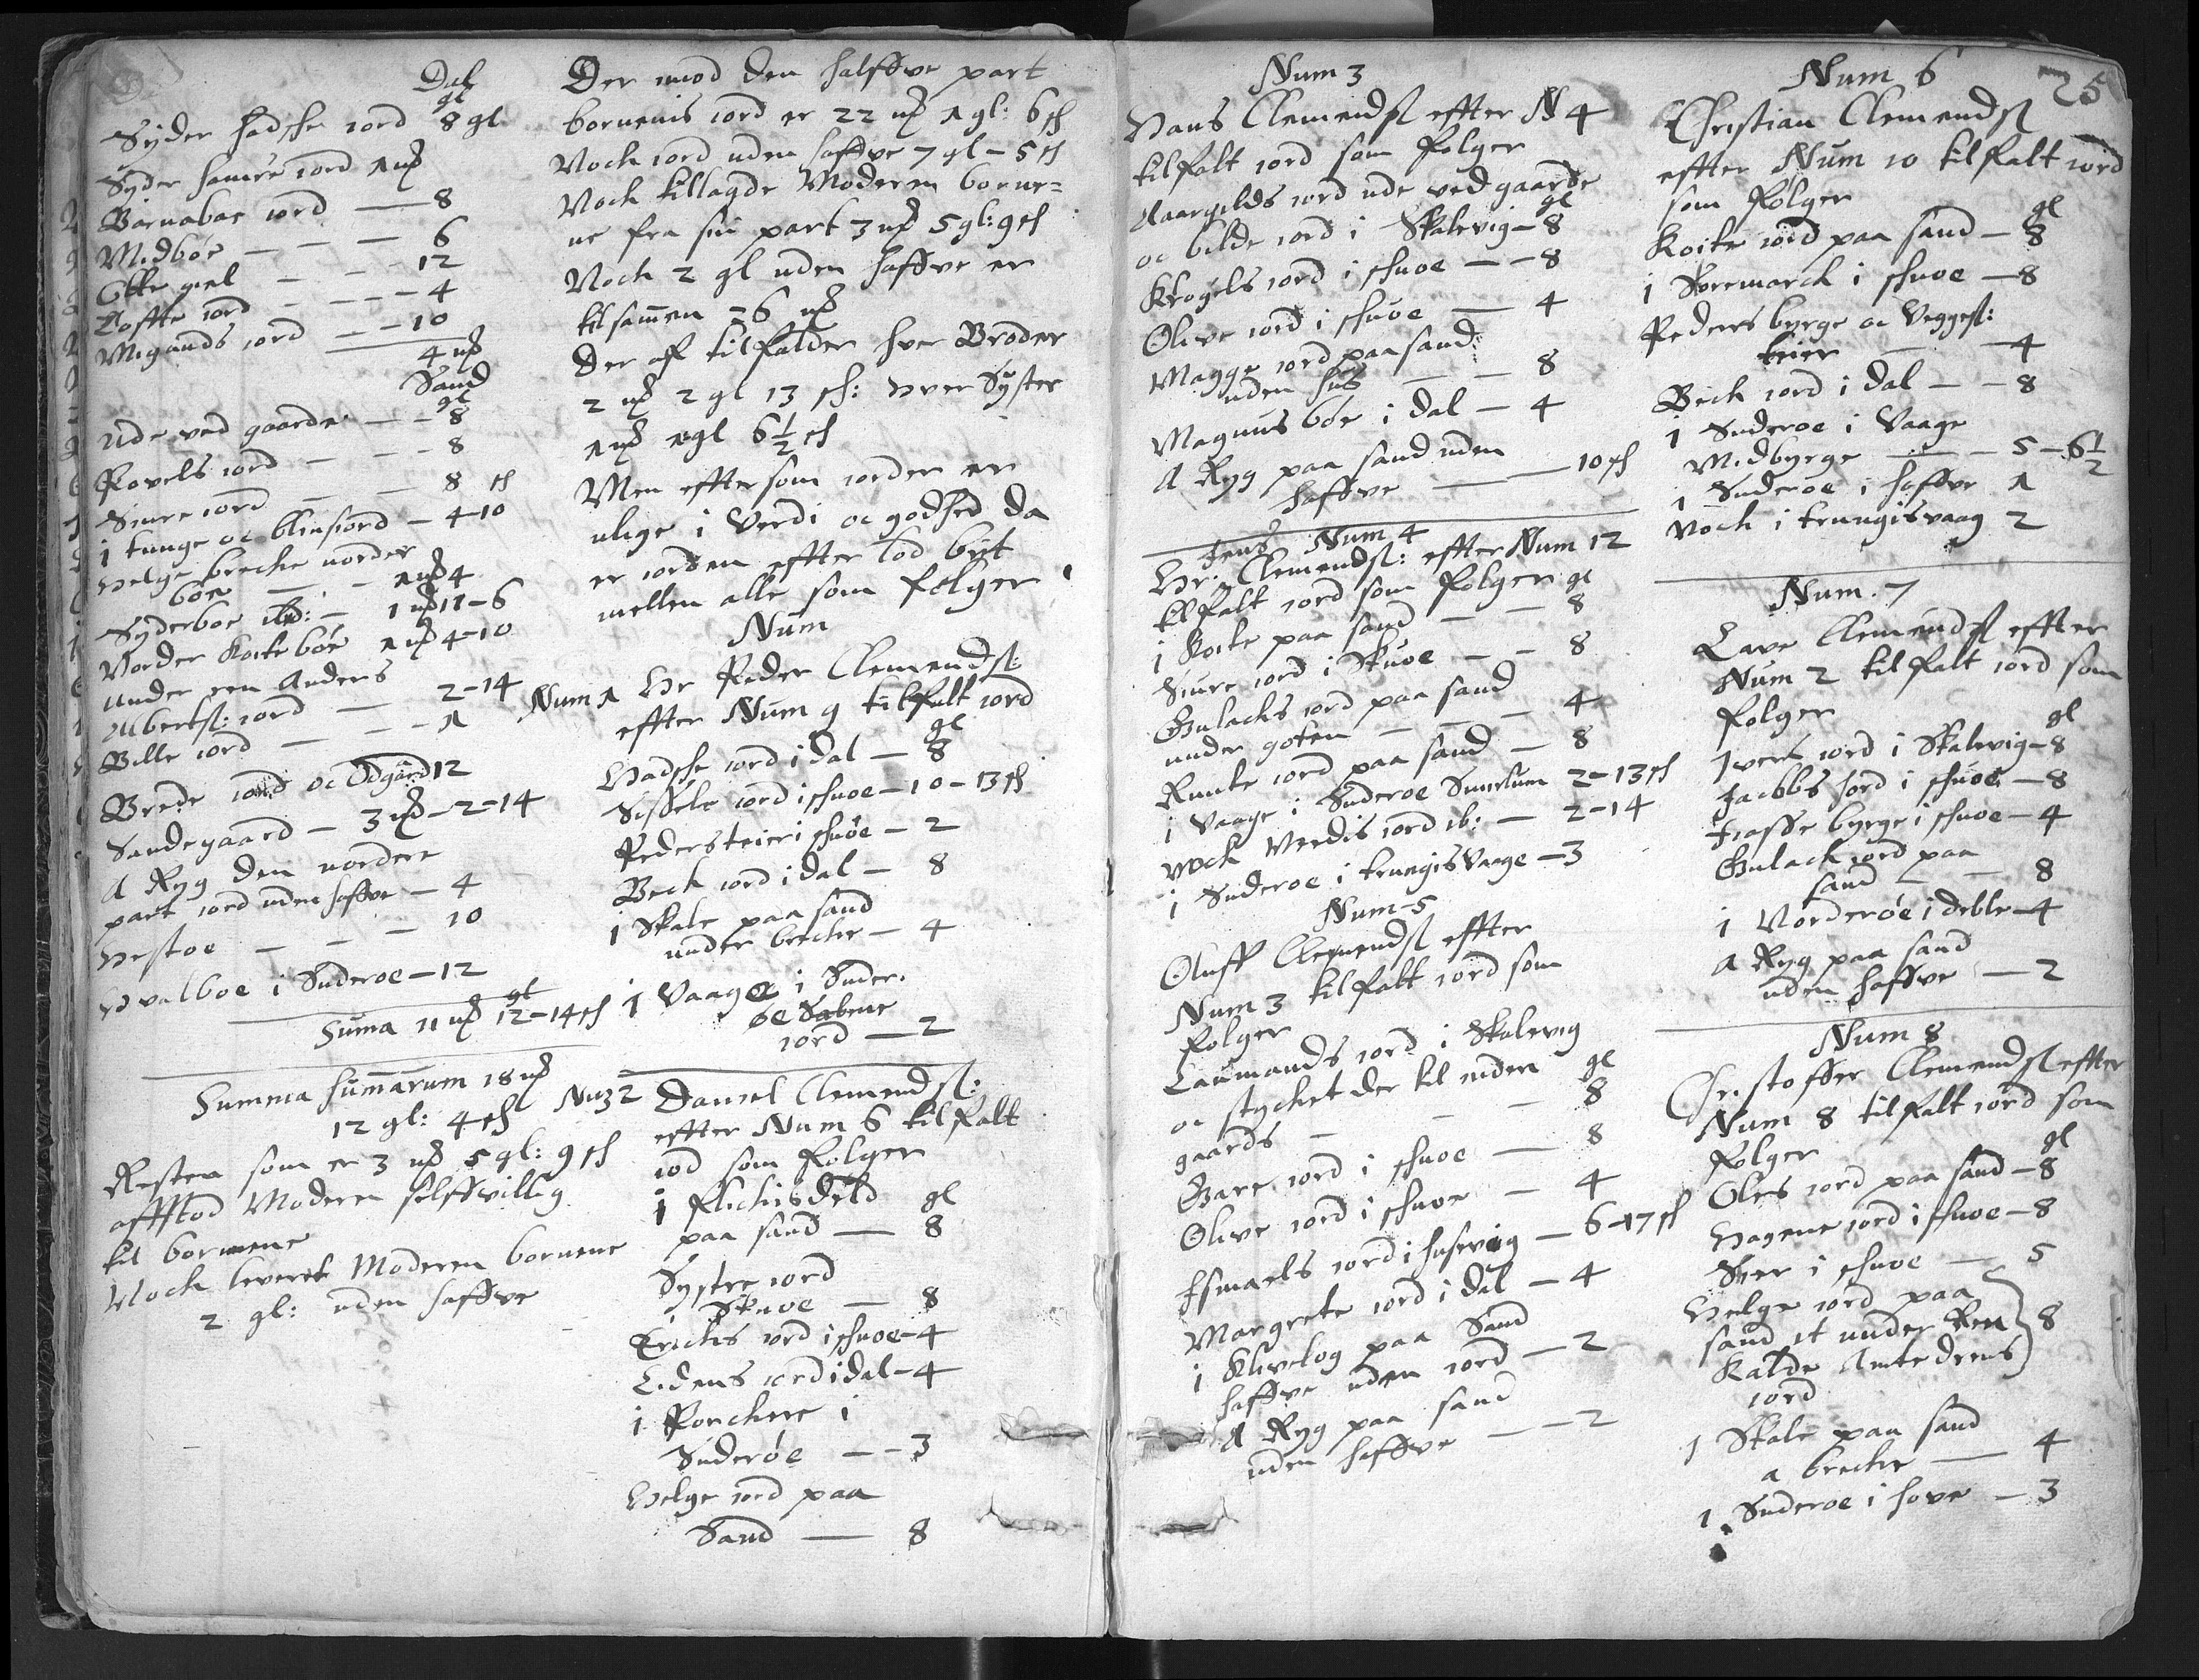 Dal
gl
Syder hadske iord 8 gl
Syder hamre iord 1 mk
Barnabae iord — 8
Midbøe — — — 6
Ytte giel — — — 12
Toftte iord — — — 4
Migands iord — — 10
4 mk
Sand
gl
Ude ved gaarde — — 8
Povels iord — — — 8
Siure iord — — 8 sk
i tunge oc blinsiord — 4-10
Helge brecke norder
böe — — 1 mk 4
Syderboe ibd: — 1 mk 11-6
Norder Koite böe 1 mk 4-10
Under een Anders
Albertsß: iord — 2-14
Bille iord — — — 1
Brede iord oc Odgard 12
Sandegaard — 3 mk - 2-14
A Ryg den nordere
part iord uden haffve — 4
Hestoe — — — 10
Hvalboe i Suderoe — 12
gl
Suma 11 mk 12-14 sk
Summa sumarum 18 mk
12 gl: 4 sk
Resten som er 3 mk 5 gl: 9 sk
affstod Moderen selffvillig
til bornene
Noch leveret Moderen bornene
2 gl: uden haffve
Der imod den halffve part
bornenis iord er 22 mk 1 gl: 6 sk
Noch iord uden haffve 7 gl - 5 sk
Noch tillagde Moderen borne=
ne fra sin part 3 mk 5 gl: 9 sk
Noch 2 gl uden haffve er
tilsamen 26 mk
Der aff tilfalder hver Broder
2 mk 2 gl 13 sk: Hver Syster
1 mk 1 gl 6½ sk
Men effter som iorden er
ulige i Verdi oc godhed da
er iorden effter lod byt
mellem alle som følger
Num
Num 1 Hr Peder Clemendsß:
effter Num 9 tilfalt iord
gl
Hadske iord i dal — 8
Sissele iord i skuoe — 10 - 13 sk
Peders teier i skuöe — 2
Beck iord i dal — 8
i Skale paa sand
under brecke — 4
i Vaage i Suder.
öe Sabene
iord — 2
Num 2 Daniel Clemendsß:
effter Num 6 tilfalt
iod som følger
i Flickis deld gl
paa sand — 8
Systre iord
Skuoe — 8
Erichs iord i skuoe — 4
Lidens iord i dal — 4
i Porckere i
Suderöe — — 3
Helge iord paa
Sand — 8
25
Num 3
Hans Clemendsß effter N 4
tilfalt iord som følger
Aargilds iord ude ved gaarde
gl
oc bilde iord i Skalevig — 8
Krogels iord i skuoe — — 8
Olive iord i skuöe — 4
Magge iord paa sand
uden hus — — 8
Magnus böe i dal — 4
A Ryg paa sand uden
haffve — 10 sk
Num 4
Jens
Hr: Clemendsß: effter Num 12
tilfalt iord som følger gl
i Koite paa sand — — 8
Siure iord i Skuoe — — 8
Gulacks iord paa sand
under goten — — — 4
Runte iord paa sand — 8
i Vaage i Suderoe Sumlum 2-13 sk
Noch Verdis iord ib: — 2-14
i Suderoe i trungisvaage — 3
Num 5
Oluff Clemendsß effter
Num 3 tilfalt iord som
følger
Laumands iord i Skalevig
oc stycket der til neden gl
gaards — — — 8
Bare iord i skuoe — 8
Olive iord i skuoe — 4
Ismaels iord i husevig — 6-17 sk
Margrete iord i dal — 4
i Klivelog paa Sand
haffve uden iord — 2
A Ryg paa sand
uden haffve — — 2
Num 6
Christian Clemendsß
effter Num 10 tilfalt iord
som følger
gl
Koite iord paa sand — 8
i Skremarck i skuoe — 8
Peders byrge oc Veggesß:
teier — — 4
Beck iord i dal — — 8
i Suderoe i Vaage
Midbyrge — — 5 - 6½
i Suderoe i haffve 1
Noch i trungisvaag 2
Num. 7
Lave Clemendsß effter
Num 2 tilfalt iord som
følger
gl
Ivers iord i Skalevig — 8
Jacobs Jord i skuoe — 8
Frasse byrge i skuoe — 4
Gulack iord paa
sand — — 8
i Norderöe i deble — 4
A Ryg paa sand
uden haffve — 2
Num 8
Christoffer Clemendsß effter
Num 8 tilfalt iord som
følger
gl
Oles iord paa sand — 8
Hagene iord i skuoe — 8
Skier i skuoe — 5
Helge iord paa
sand it under Ren 8
Kalde Amtedrens
iord
i Skale paa sand
a brecke — 4
i Suderoe i hove — 3